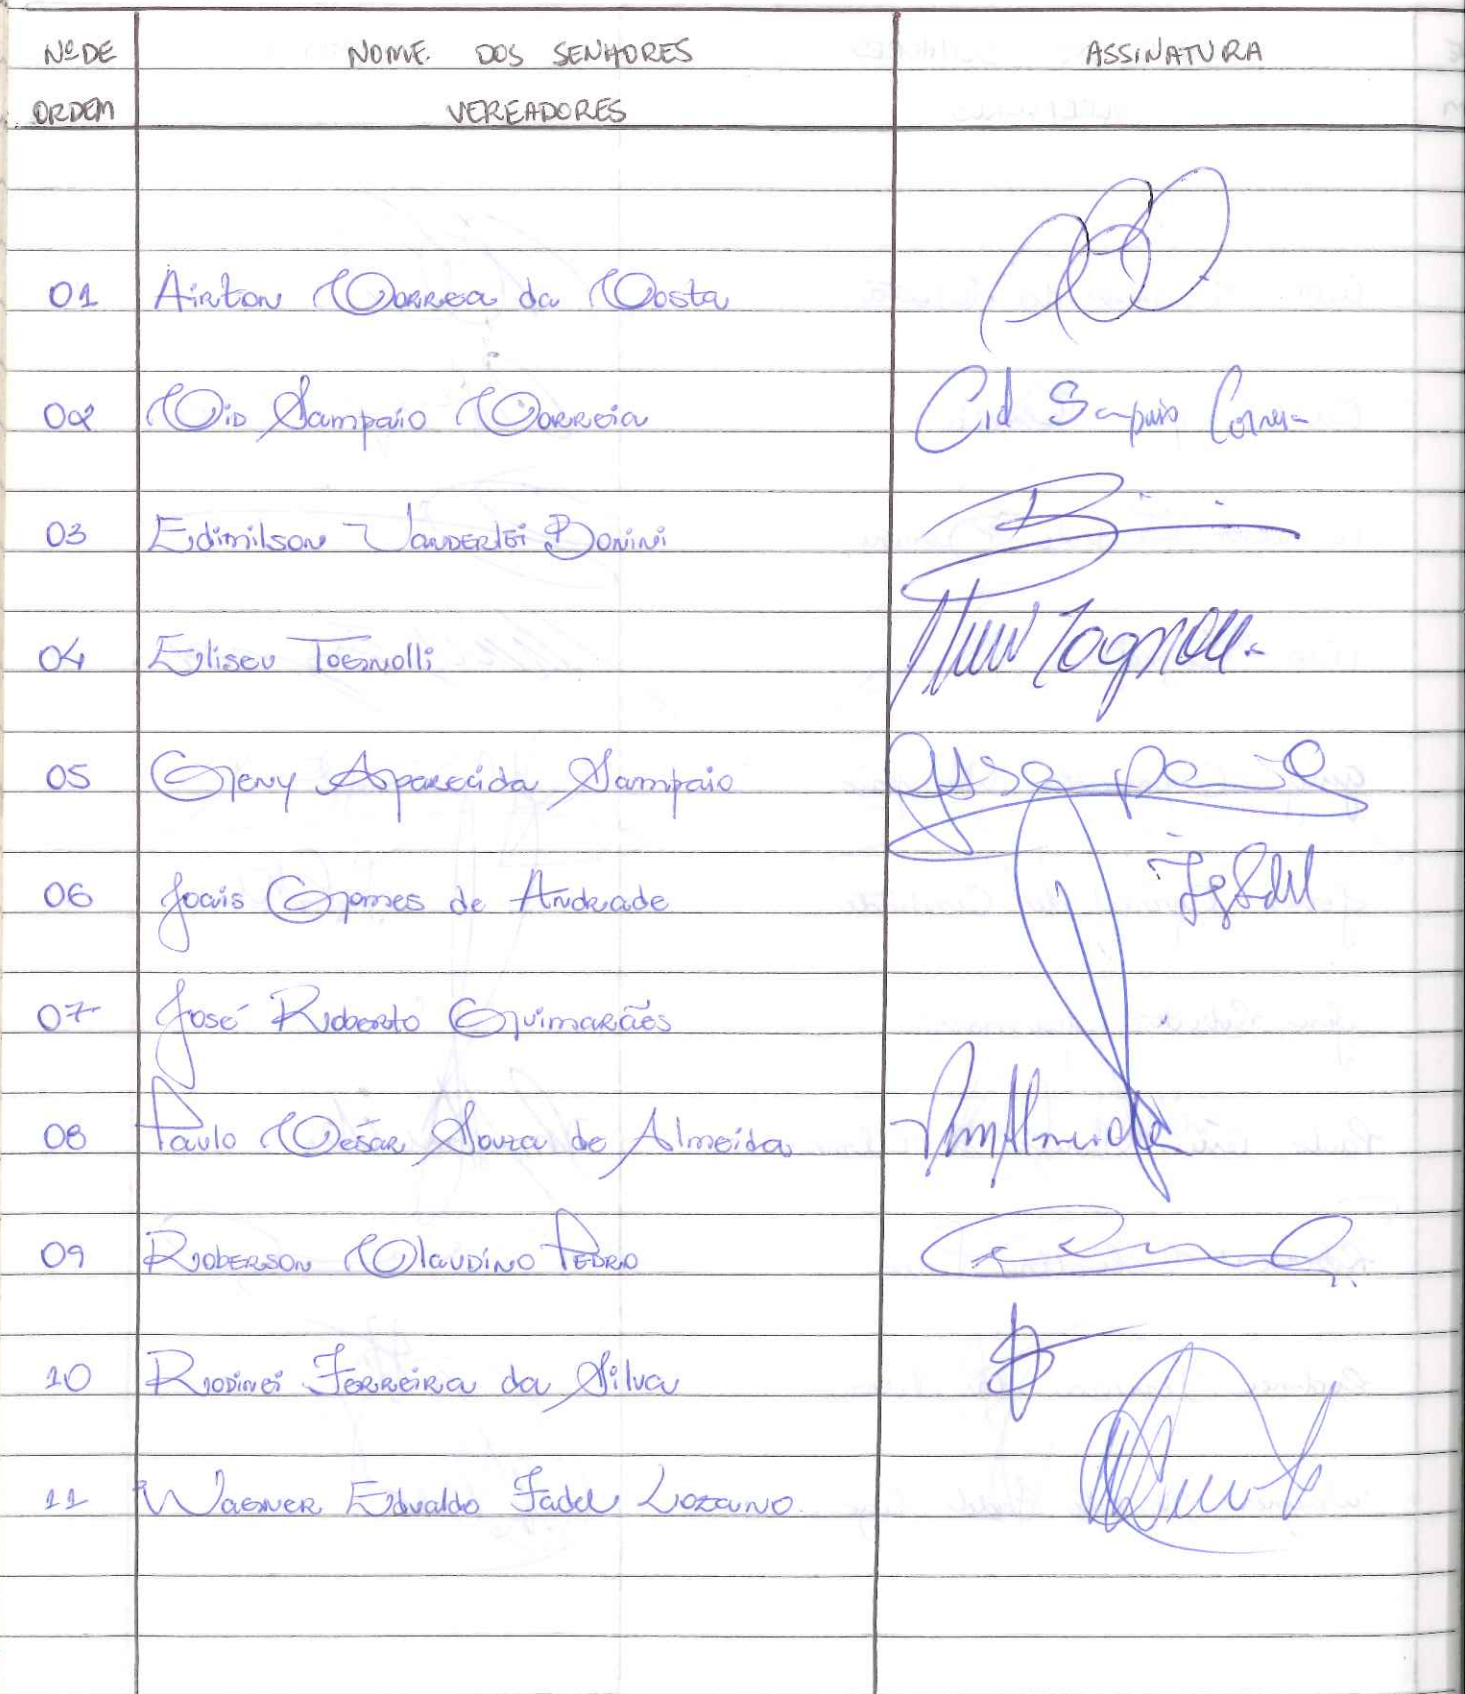 Nº DE NOME DOS SENHORES ASSINATURA
ORDEM VEREADORES
01 Airton Correa da Costa
02 Cid Sampaio Correia Cid Sampaio Correia
03 Edimilson Vanderlei Bonini
04 Eliseu Tognolli Tognolli
05 Geny Aparecida Sampaio
06 Joais Gomes de Andrade
07 José Roberto Guimarães
08 Paulo Cesar Souza de Almeida Almeida
09 Roberson Claudino Pedro
10 Rodinei Ferreira da Silva
11 Wagner Edvaldo Fadel Lozano